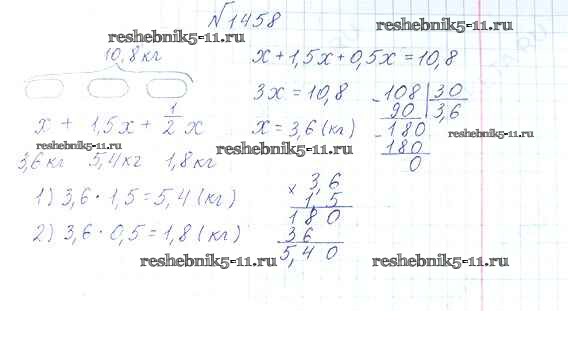 №1458
reshebnik5-11.ru
reshebnik5-11.ru
10,8 кг
x + 1,5x + 0,5x = 10,8
3x = 10,8
108 | 30
- 90 | 3,6
reshebnik5-11.ru
x + 1,5x + 1/2 x
x = 3,6 (кг)
- 180
reshebnik5-11.ru
reshebnik5-11.ru
180
0
3,6 кг 5,4 кг 1,8 кг
1) 3,6 · 1,5 = 5,4 (кг)
2) 3,6 · 0,5 = 1,8 (кг)
× 3,6
1,5
180
36
5,40
reshebnik5-11.ru
reshebnik5-11.ru